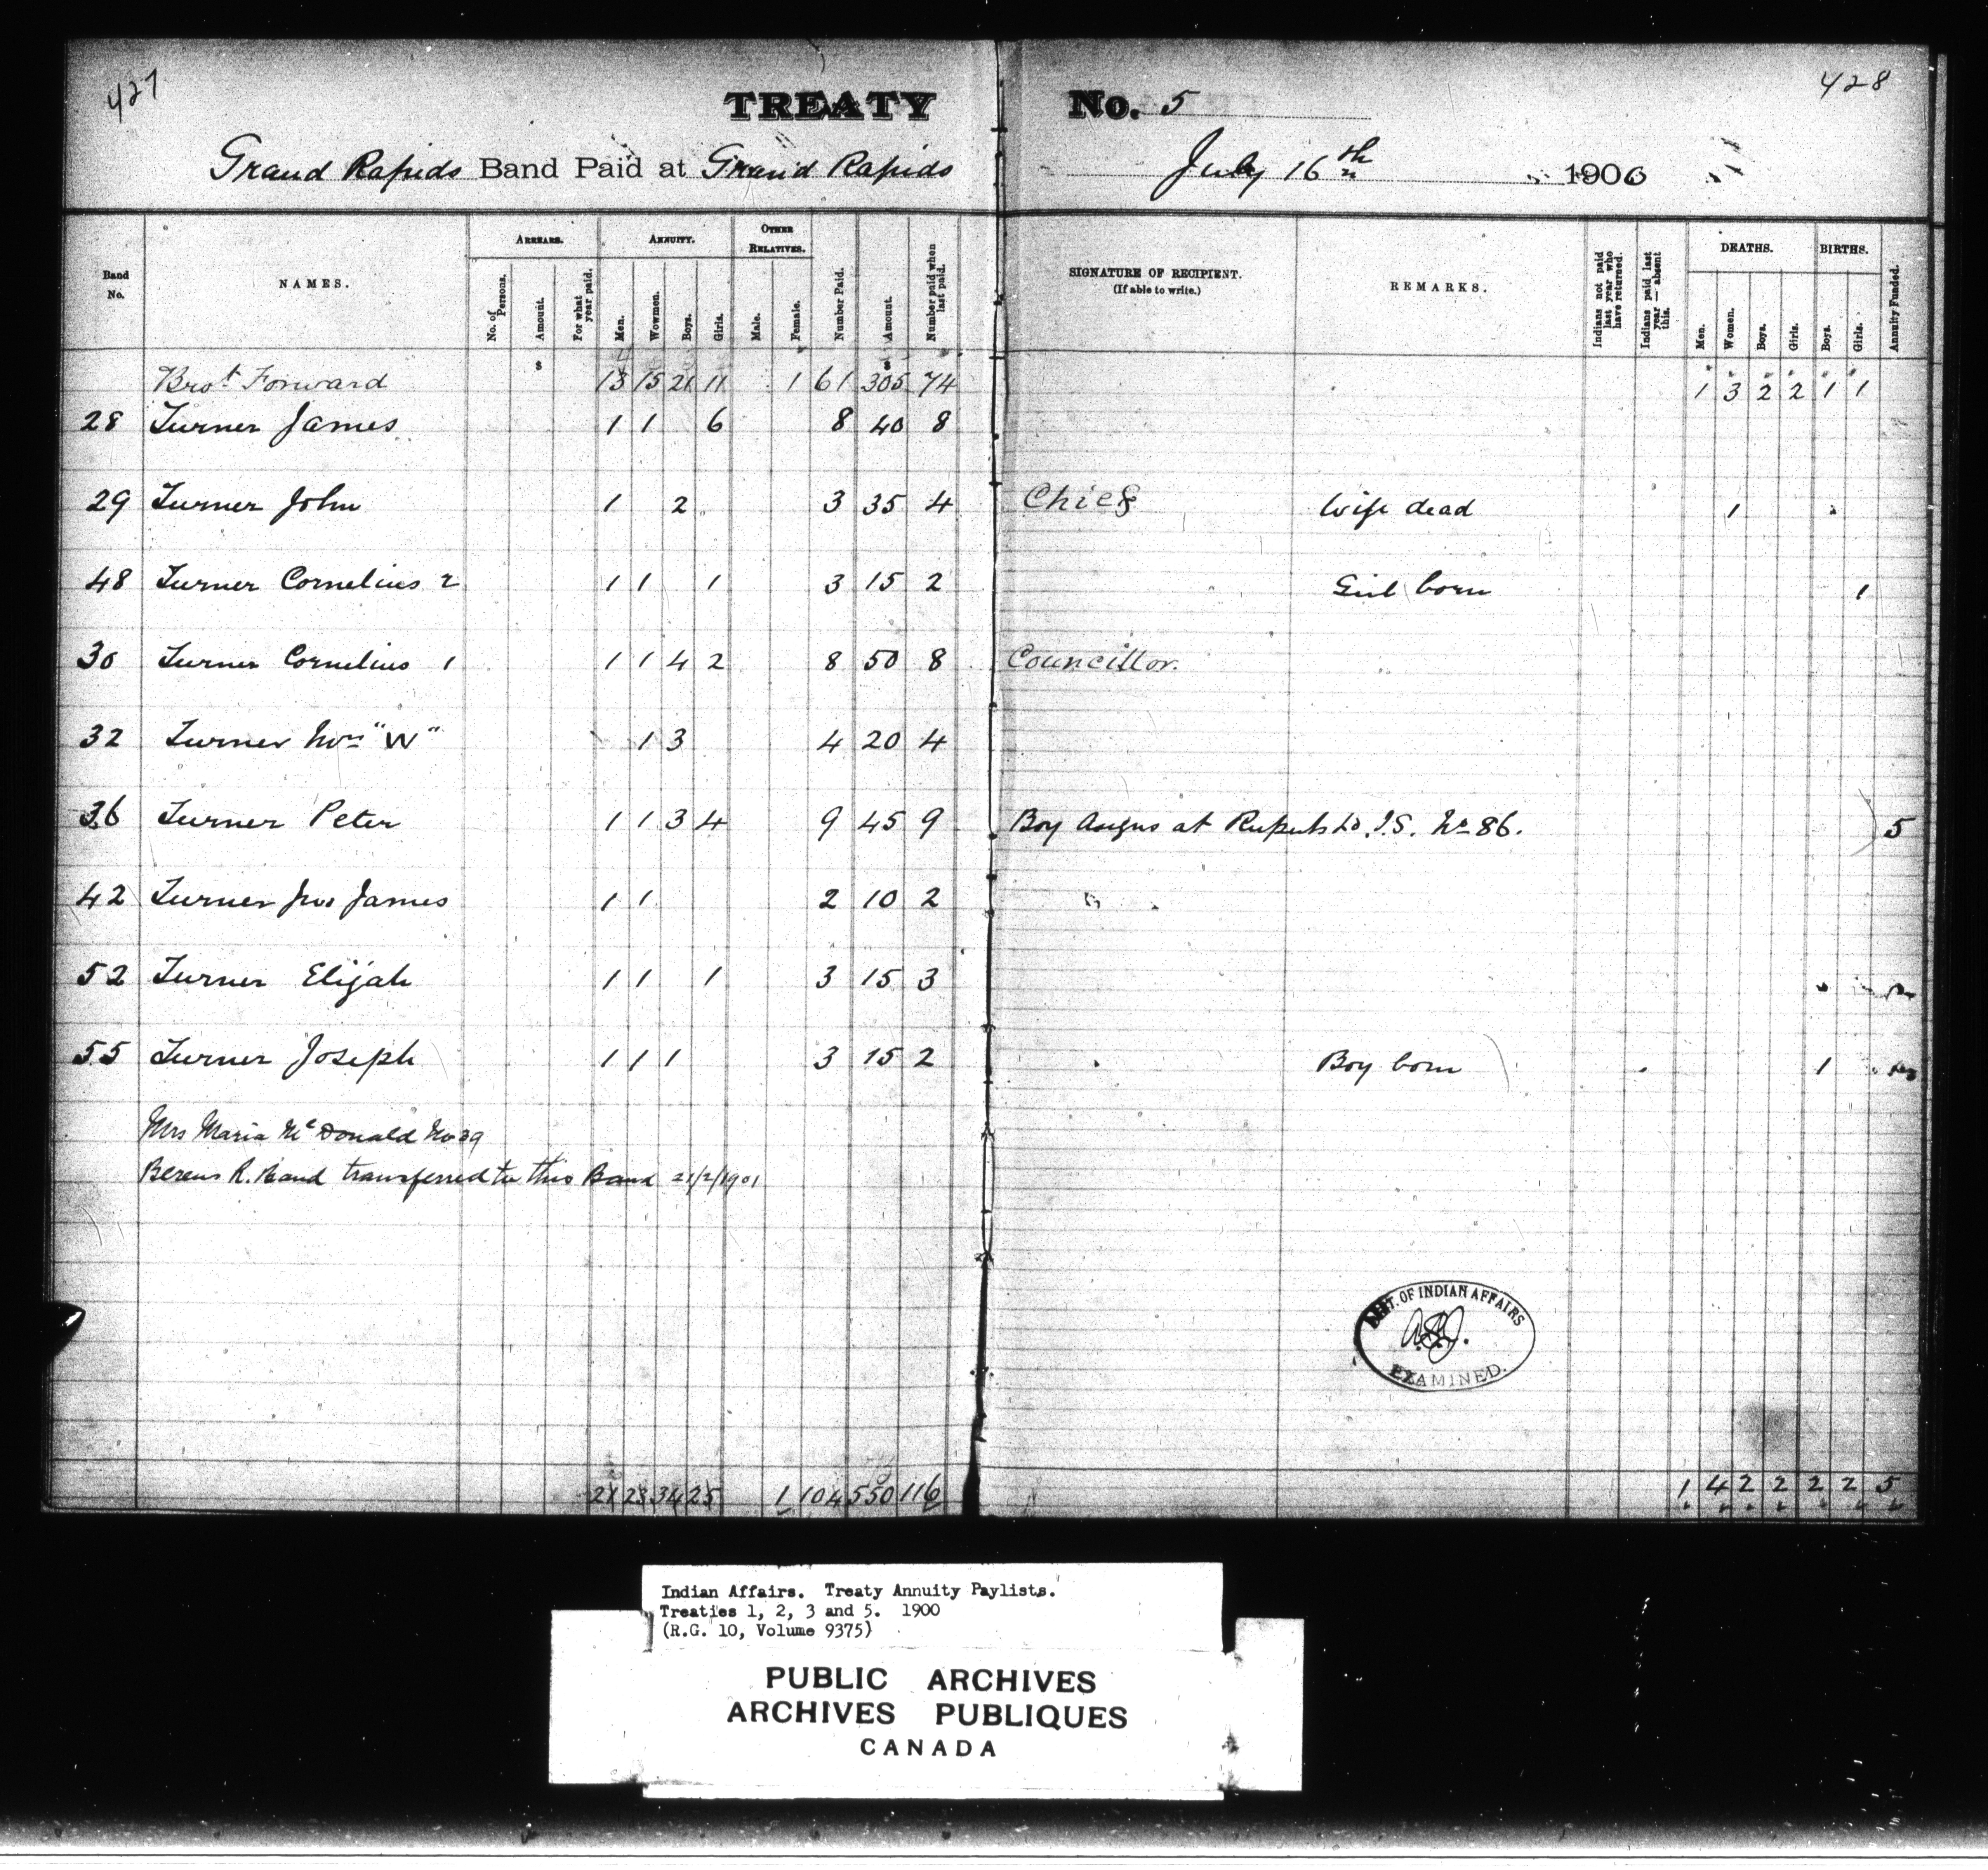 427
TREATY No. 5
428
Grand Rapids Band Paid at Grand Rapids July 16th 1900
Band No.
NAMES.
ARREARS.
No. of Persons.
Amount.
For what year paid.
ANNUITY.
Men.
Wowmen.
Boys.
Girls.
OTHER RELATIVES.
Male.
Female.
Number Paid.
Amount.
Number paid when last paid.
SIGNATURE OF RECIPIENT.
(If able to write.)
REMARKS.
Indians not paid last year who have returned.
Indians paid last year — absent this.
DEATHS.
Men.
Women.
Boys.
Girls.
BIRTHS.
Boys.
Girls.
Annuity Funded.
$ $
Brot Forward 13 15 21 11 1 61 305 74 1 3 2 2 1 1
28 Turner James 1 1 6 8 40 8
29 Turner John 1 2 3 35 4 Chief Wife dead 1
48 Turner Cornelius 2 1 1 1 3 15 2 Girl born 1
30 Turner Cornelius 1 1 1 4 2 8 50 8 Councillor.
32 Turner "W" 1 3 4 20 4
36 Turner Peter 1 1 3 4 9 45 9 Boy Angus at Ruperts Ld. I.S. No 86. 5
42 Turner Jno James 1 1 2 10 2
52 Turner Elijah 1 1 1 3 15 3
55 Turner Joseph 1 1 1 3 15 2 Boy born 1
Mrs Maria McDonald No 39
Berens R. Band transferred to this Band 21/2/1901
DEPT. OF INDIAN AFFAIRS
EXAMINED.
21 23 34 25 1 104 550 116 1 4 2 2 2 2 5
Indian Affairs. Treaty Annuity Paylists.
Treaties 1, 2, 3 and 5. 1900
(R.G. 10, Volume 9375)
PUBLIC ARCHIVES
ARCHIVES PUBLIQUES
CANADA